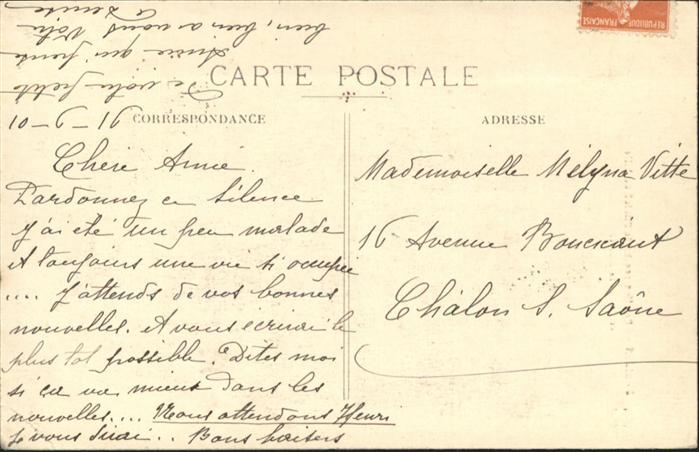 CARTE POSTALE
CORRESPONDANCE
Chère Amie
Pardonnez ce silence
j'ai été un peu malade
et toujours une vie si occupée
.... J'attends de vos bonnes
nouvelles. et vous écrirai le
plus tôt possible. Dites moi
si ça va mieux dans les
nouvelles.... Nous attendons Henri
je vous dirai... Bons baisers
De votre petite
Amie qui pense
bien, bien à vous Votre
ADRESSE
Mademoiselle Mélyna Vitte
16 Avenue Boucicaut
Châlon S. Saône
REPUBLIQUE FRANÇAISE